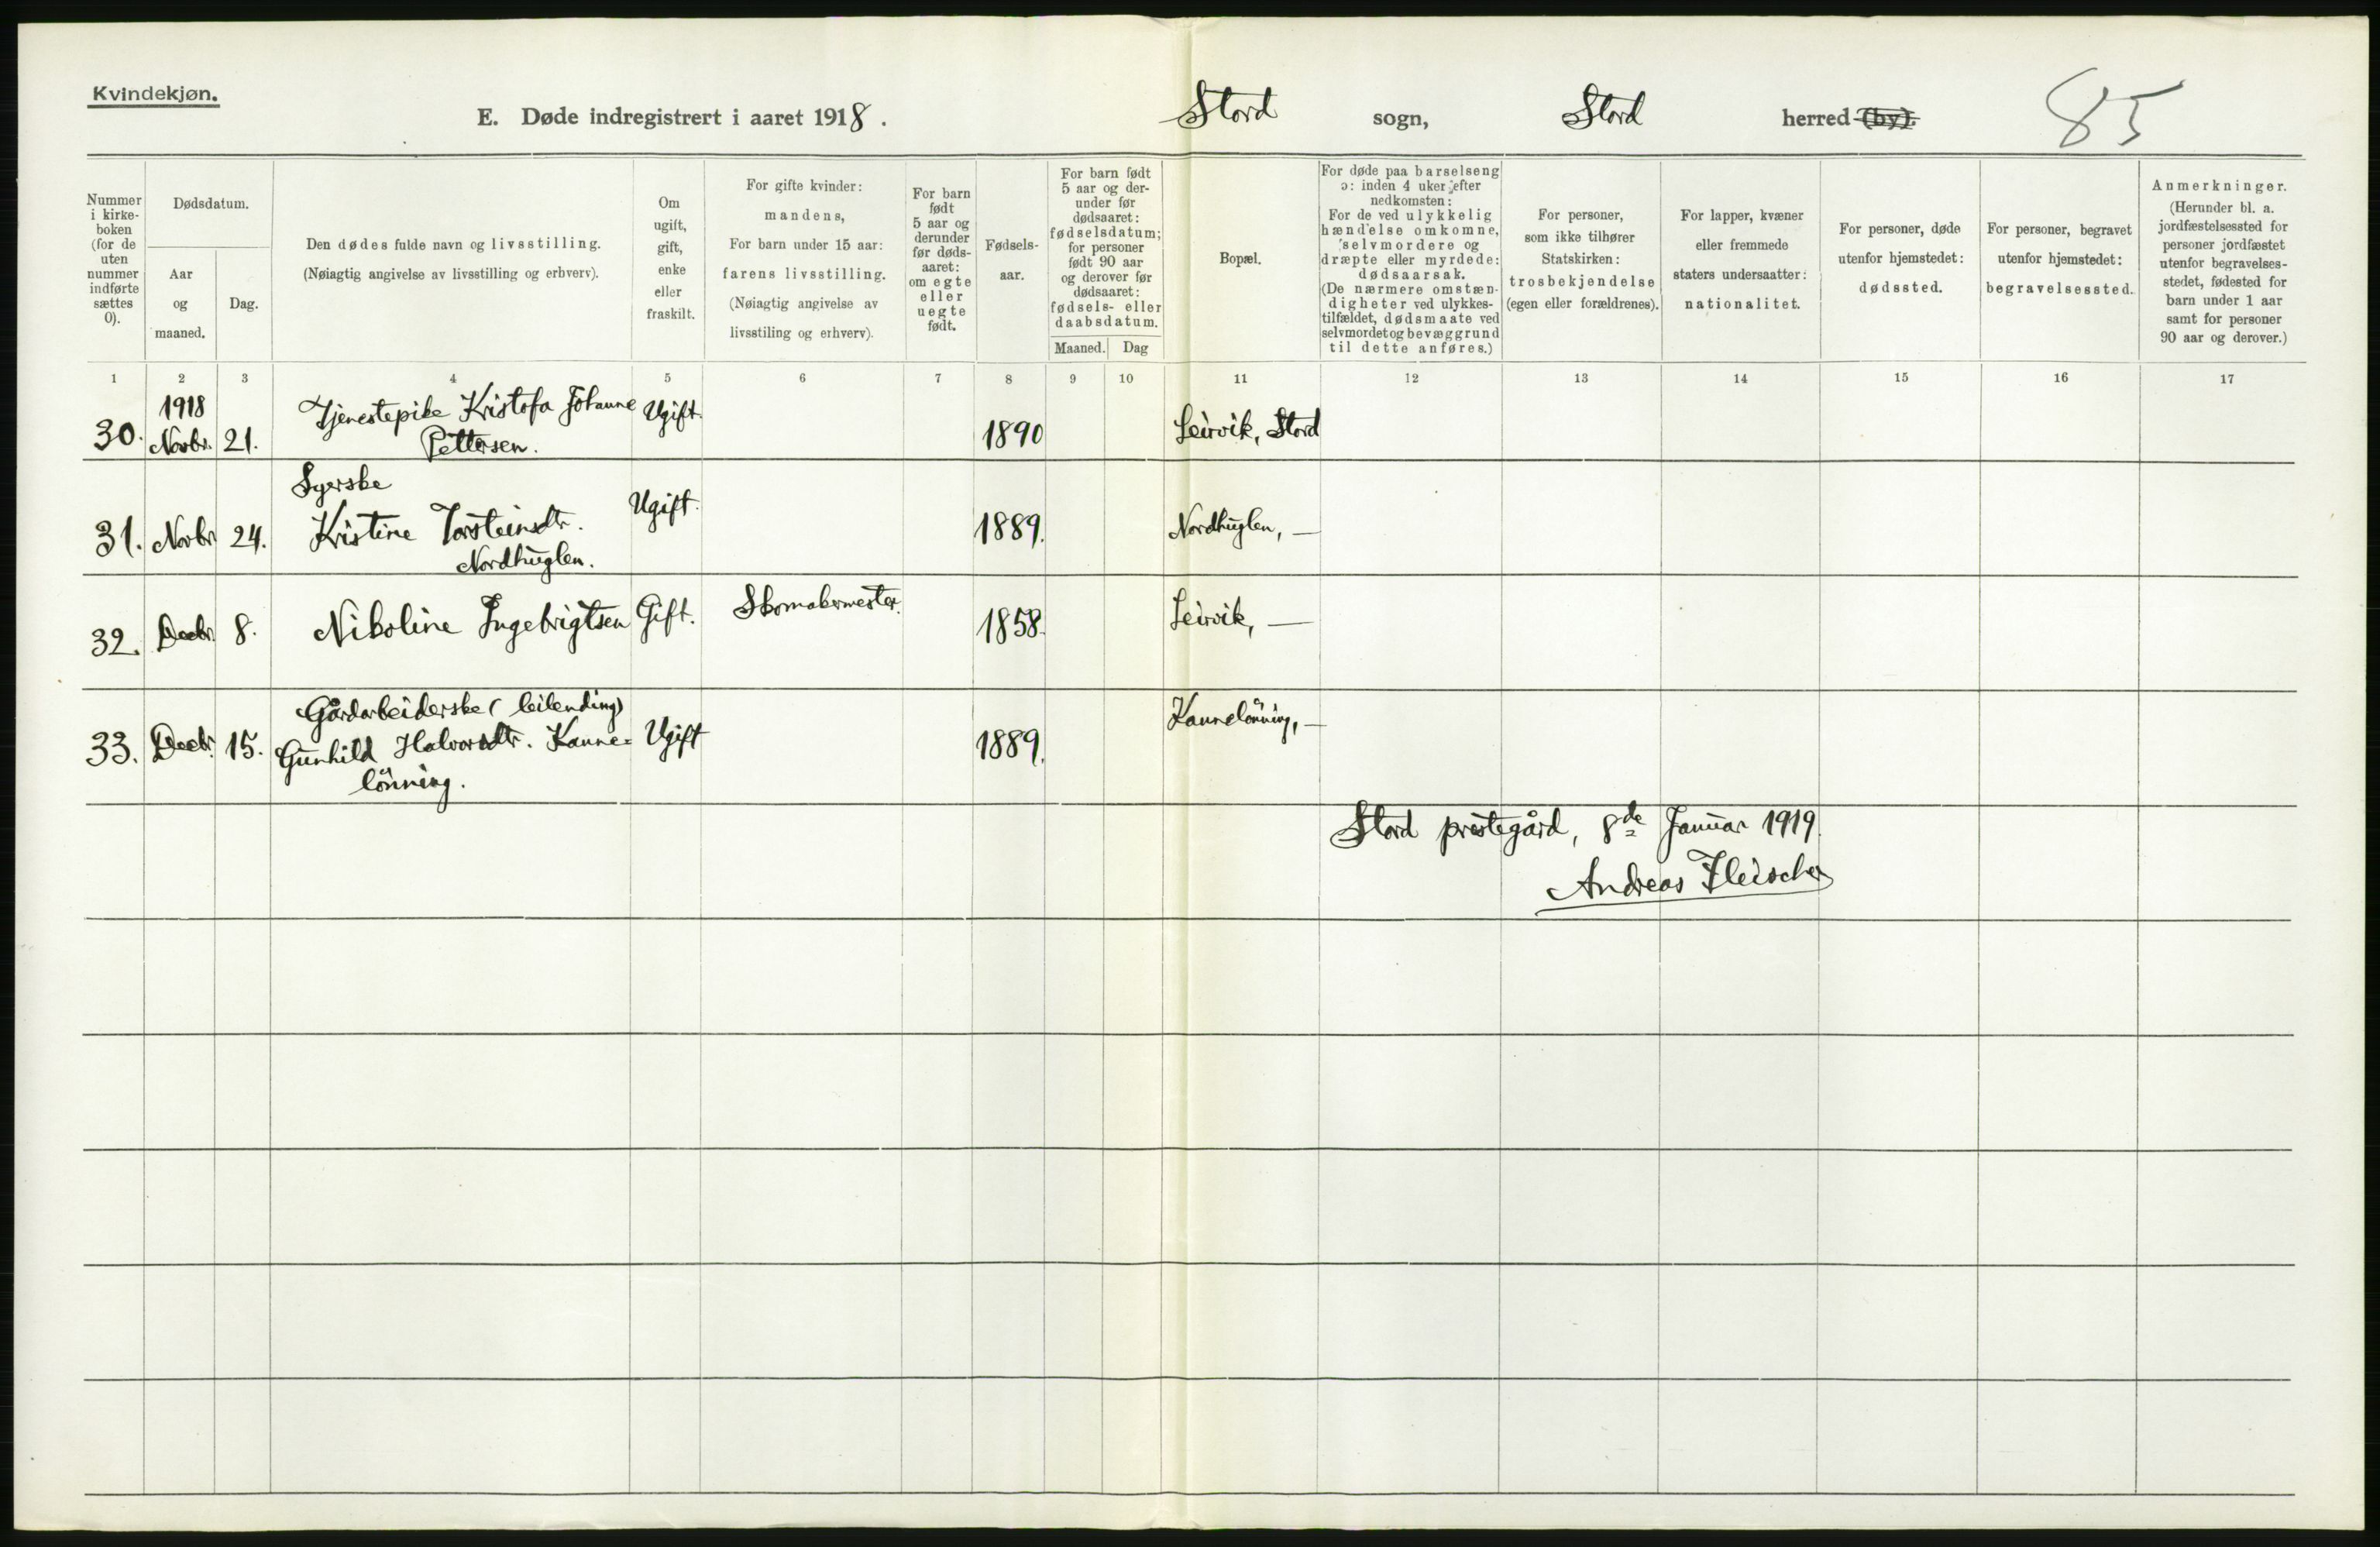 Kvindekjøn.
E. Døde indregistrert i aaret 1918.
Stord sogn, Stord herred (by).
85
Nummer i kirke-
boken
(for de
uten
nummer
indførte
sættes
0).
Dødsdatum.
Aar
og
maaned.
Dag.
Den dødes fulde navn og livsstilling.
(Nøiagtig angivelse av livsstilling og erhverv).
Om
ugift,
gift,
enke
eller
fraskilt.
For gifte kvinder:
mandens,
For barn under 15 aar:
farens livsstilling.
(Nøiagtig angivelse av
livsstiling og erhverv).
For barn
født
5 aar og
derunder
før døds-
aaret:
om egte
eller
uegte
født.
Fødsels-
aar.
For barn født
5 aar og der-
under før
dødsaaret:
fødselsdatum;
for personer
født 90 aar
og derover før
dødsaaret:
fødsels- eller
daabsdatum.
Maaned.
Dag
Bopæl.
For døde paa barselseng
ɔ: inden 4 uker efter
nedkomsten:
For de ved ulykkelig
hændelse omkomne,
selvmordere og
dræpte eller myrdede:
dødsaarsak.
(De nærmere omstæn-
digheter ved ulykkes-
tilfældet, dødsmaate ved
selvmordet og bevæggrund
til dette anføres.)
For personer,
som ikke tilhører
Statskirken:
trosbekjendelse
(egen eller forældrenes).
For lapper, kvæner
eller fremmede
staters undersaatter:
nationalitet.
For personer, døde
utenfor hjemstedet:
dødssted.
For personer, begravet
utenfor hjemstedet:
begravelsessted.
Anmerkninger.
(Herunder bl. a.
jordfæstelsessted for
personer jordfæstet
utenfor begravelses-
stedet, fødested for
barn under 1 aar
samt for personer
90 aar og derover.)
1 2 3 4 5 6 7 8 9 10 11 12 13 14 15 16 17
1918
30. Novbr. 21. Tjenestepike Kristofa Johanne Ugift. 1890 Leirvik, Stord
Pettersen.
Syerske
31. Novbr 24. Kristine Torsteinsdtr. Ugift. 1889. Nordhuglen, —
Nordhuglen.
32. Decbr. 8. Nikoline Ingebrigtsen Gift. Skomakermester. 1858. Leirvik, —
Gårdarbeiderske (leilending)
33. Decbr. 15. Gunhild Halvorsdtr. Kanne= Ugift 1889. Kannelönning, —
lönning.
Stord prestegård, 8de Januar 1919.
Andreas Fleischer